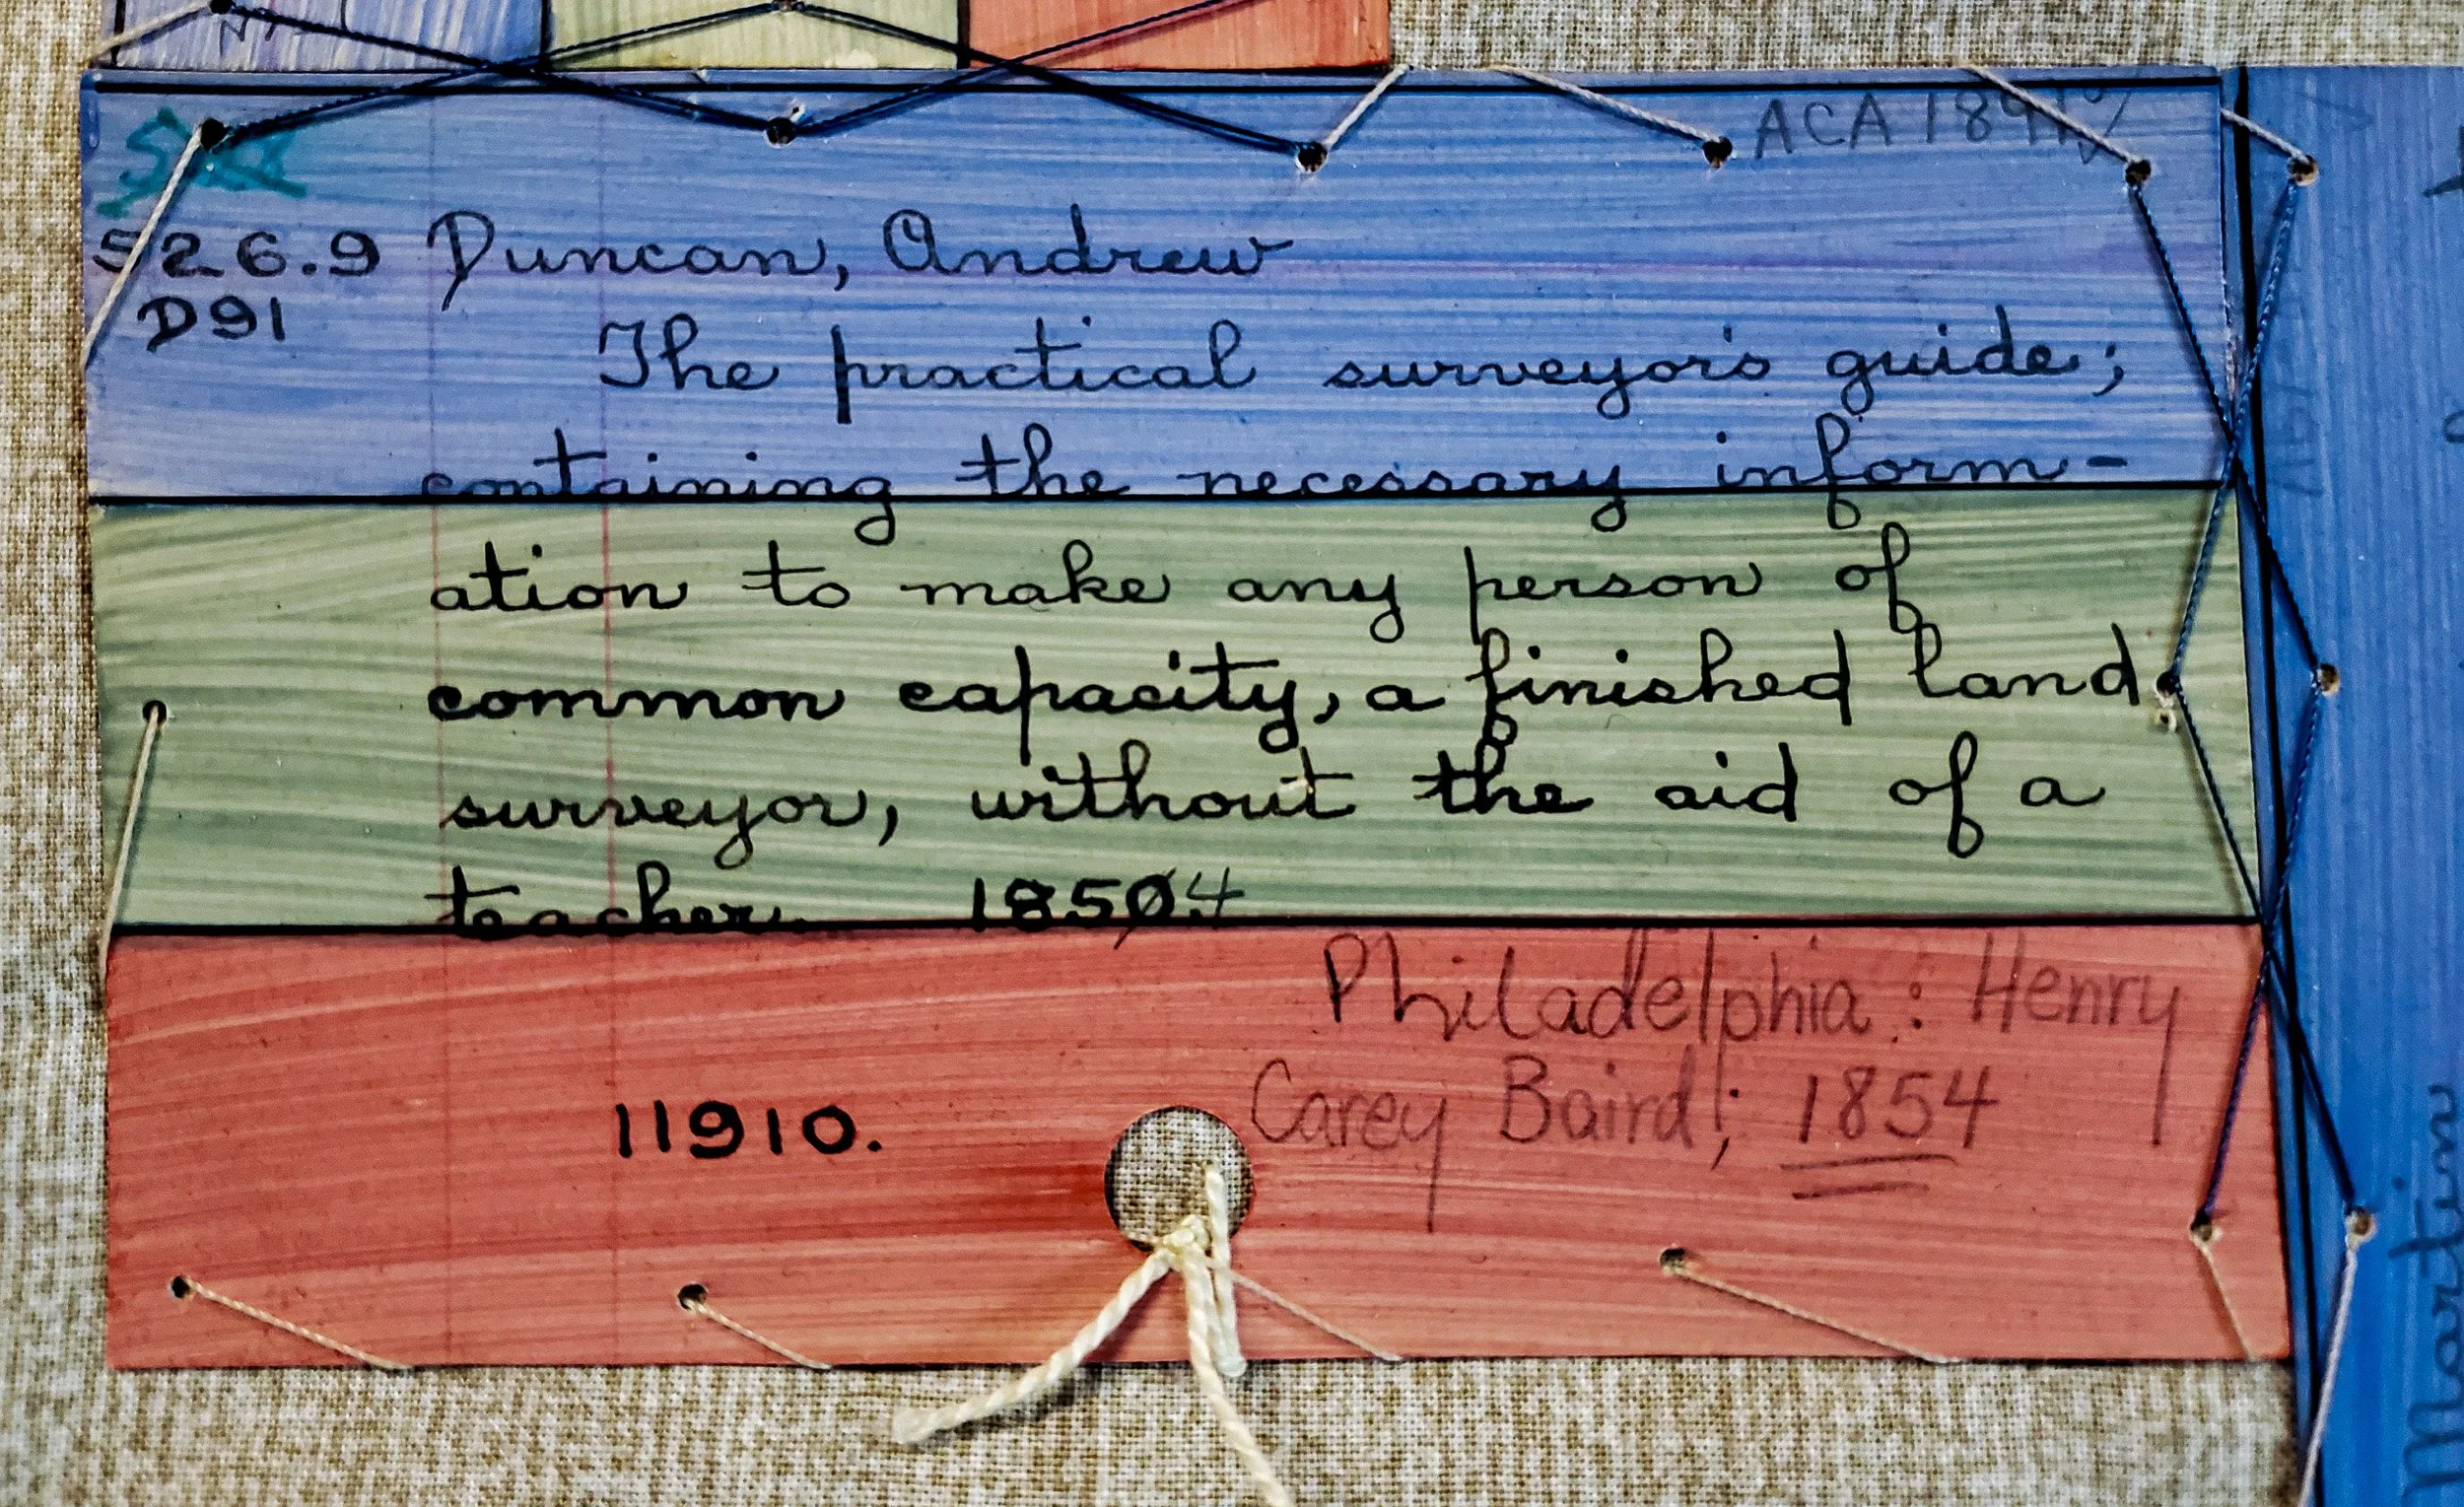 ACA
526.9 Duncan, Andrew
D91
The practical surveyor's guide;
containing the necessary inform-
ation to make any person of
common capacity, a finished land
surveyor, without the aid of a
teacher. 18504
Philadelphia : Henry
Carey Baird, 1854
11910.